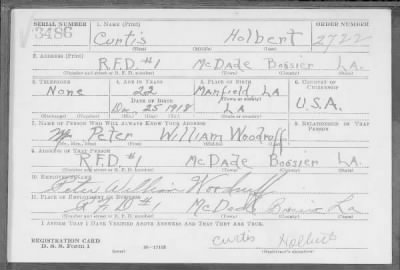 SERIAL NUMBER 1. NAME (Print) ORDER NUMBER
3486 Curtis Holbert 2722
(First) (Middle) (Last)
2. ADDRESS (Print)
R.F.D. #1 McDade Bossier LA.
(Number and street or R. F. D. number) (Town) (County) (State)
3. TELEPHONE 4. AGE IN YEARS 5. PLACE OF BIRTH 6. COUNTRY OF CITIZENSHIP
None 22 Manfield LA
DATE OF BIRTH (Town or county)
Dec 25 1918 LA U.S.A.
(Exchange) (Number) (Mo.) (Day) (Yr.) (State or country)
7. NAME OF PERSON WHO WILL ALWAYS KNOW YOUR ADDRESS 8. RELATIONSHIP OF THAT PERSON
Mr Peter William Woodroff
(Mr., Mrs., Miss) (First) (Middle) (Last)
9. ADDRESS OF THAT PERSON
R.F.D. #1 McDade Bossier LA.
(Number and street or R. F. D. number) (Town) (County) (State)
10. EMPLOYER'S NAME
Peter William Woodruff
11. PLACE OF EMPLOYMENT OR BUSINESS
R F D #1 McDade La
(Number and street or R. F. D. number) (Town) (County) (State)
I AFFIRM THAT I HAVE VERIFIED ABOVE ANSWERS AND THAT THEY ARE TRUE.
REGISTRATION CARD
D. S. S. Form 1 16—17105 curtis Holbert
(Registrant's signature)